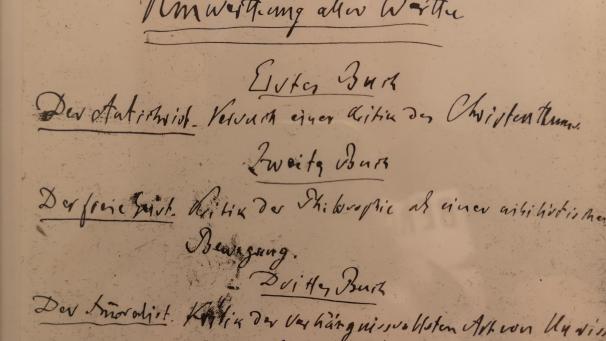 Umwerthung aller Werthe
Erstes Buch
Der Antichrist. Versuch einer Kritik des Christenthums.
Zweites Buch
Der freie Geist. Kritik der Philosophie als einer nihilistischen
Bewegung.
Drittes Buch
Der Immoralist. Kritik der verhängnissvollsten Art von Unwiss